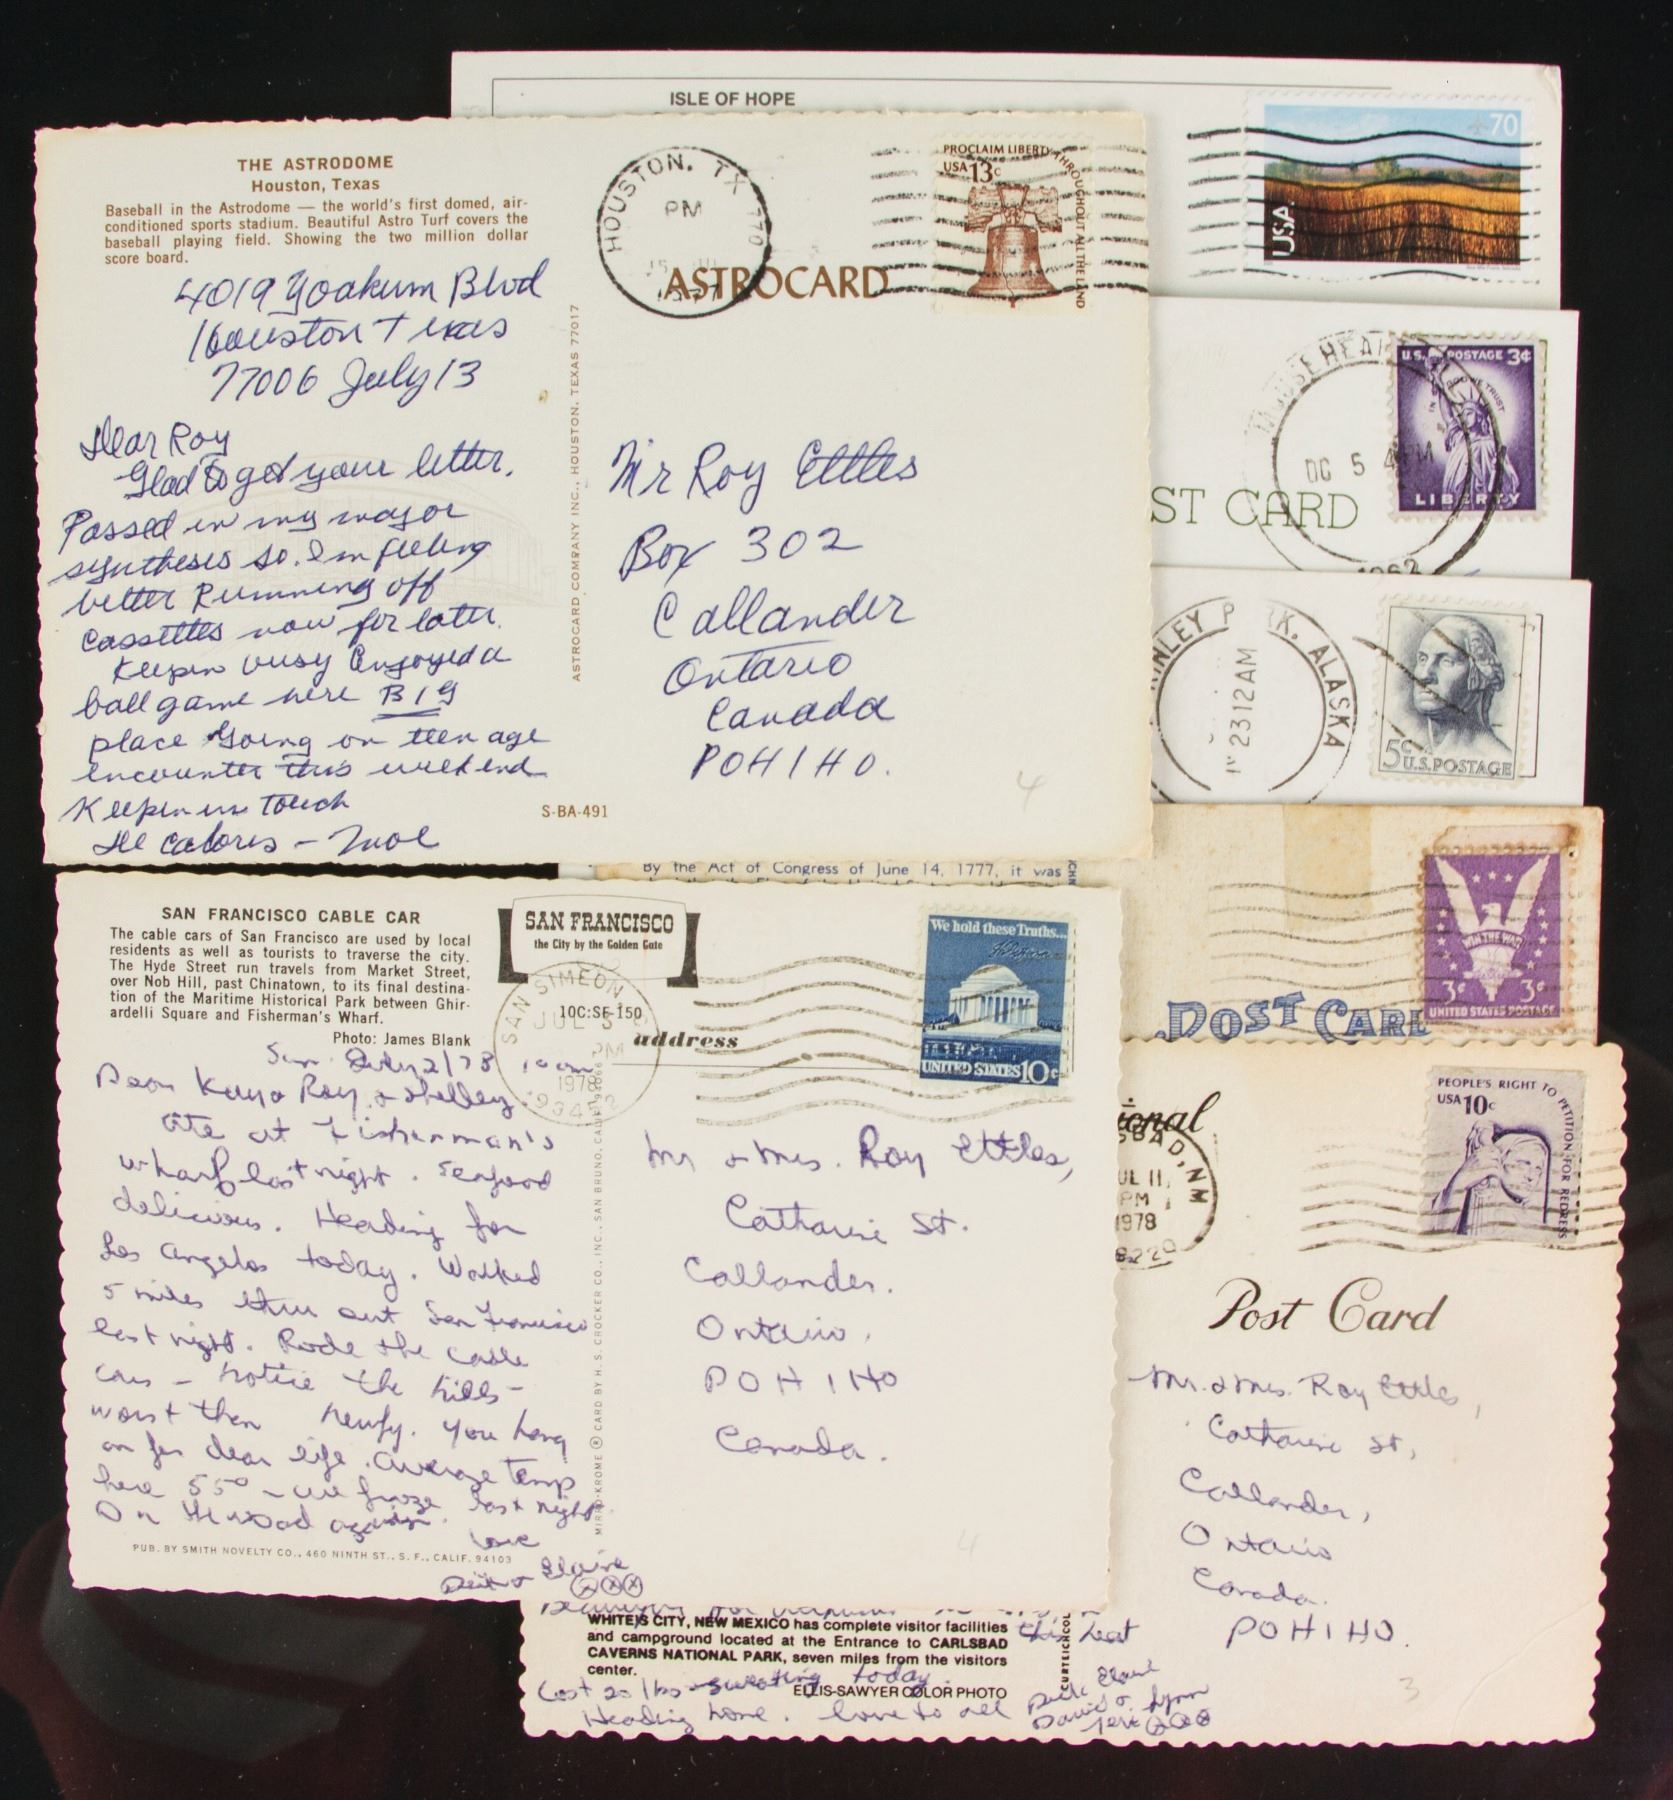 ISLE OF HOPE
70
USA
THE ASTRODOME
Houston, Texas
Baseball in the Astrodome — the world's first domed, air-
conditioned sports stadium. Beautiful Astro Turf covers the
baseball playing field. Showing the two million dollar
score board.
HOUSTON, TX 770
PM
1977
ASTROCARD
PROCLAIM LIBERTY THROUGHOUT ALL THE LAND
USA 13c
4019 Yoakum Blvd
Houston Texas
77006 July 13
Dear Roy
Glad to get your letter.
Passed in my major
synthesis so. I'm feeling
better Running off
cassettes now for later.
Keepin busy Enjoyed a
ball game here BIG
place Going on teenage
encounter this weekend
Keep in touch
De Colores -
ASTROCARD COMPANY INC., HOUSTON, TEXAS 77017
S-BA-491
Mr Roy Ettles
Box 302
Callander
Ontario
Canada
POH 1HO.
4
U.S. POSTAGE 3¢
IN GOD WE TRUST
LIBERTY
ST CARD
NLEY P K. ALASKA
23 12 AM
5c
U.S. POSTAGE
By the Act of Congress of June 14, 1777, it was
POST CARD
WIN THE WAR
3¢ 3¢
UNITED STATES POSTAGE
SAN FRANCISCO CABLE CAR
The cable cars of San Francisco are used by local
residents as well as tourists to traverse the city.
The Hyde Street run travels from Market Street,
over Nob Hill, past Chinatown, to its final destina-
tion of the Maritime Historical Park between Ghir-
ardelli Square and Fisherman's Wharf.
Photo: James Blank
SAN FRANCISCO
the City by the Golden Gate
SAN SIMEON,
JUL
PM
1978
10C:SF-150
address
We hold these Truths...
UNITED STATES 10c
Sun. July 2/78 10 am
Dear Kay Roy & Shelley
Ate at Fisherman's
wharf last night. Seafood
delicious. Heading for
Los Angelos today. Walked
5 miles thru out San Francisco
last night. Rode the cable
cars - notice the hills -
worst then Newfy. You hang
on for dear life. Average temp
here 55° - we froze last night.
On the road again.
Love
Elaine
PUB. BY SMITH NOVELTY CO., 460 NINTH ST., S. F., CALIF. 94103
MIRRO-KROME ® CARD BY H. S. CROCKER CO., INC., SAN BRUNO, CALIF. 94066
Mr & Mrs. Roy Ettles,
Catharine St.
Callander.
Ontario,
POH 1HO
Canada.
4
onal
SBAD, NM
JUL 11,
PM
1978
8220
PEOPLE'S RIGHT TO PETITION FOR REDRESS
USA 10c
Post Card
Mr. & Mrs. Roy Ettles,
Catharine St,
Callander,
Ontario
Canada.
POH 1HO.
3
this heat
WHITE'S CITY, NEW MEXICO has complete visitor facilities
and campground located at the Entrance to CARLSBAD
CAVERNS NATIONAL PARK, seven miles from the visitors
center.
ELLIS-SAWYER COLOR PHOTO
CURTEICHCOL
Lost 20 lbs sweating today.
Heading home. Love to all